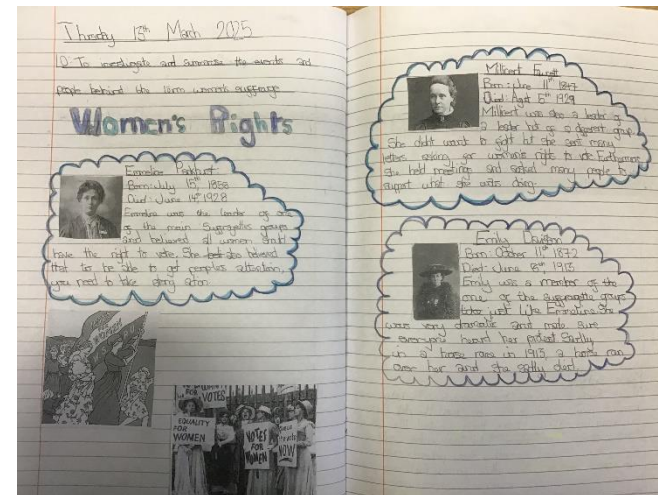 Thursday 13th March 2025
LO: To investigate and summarise the events and
people behind the term women's suffrage
Women's Rights
Emmeline Pankhurst
Born: July 15th, 1858
Died: June 14th, 1928
Emmeline was the leader of one
of the main Suffragettes groups
and believed all women should
have the right to vote. She also believed
that to be able to get people's attention,
you need to take strong action.
VOTES
EQUALITY
FOR
WOMEN
VOTES
FOR
WOMEN
NOW
Born: June 11th 1847
Died: August 5th 1929
Millicent was also a leader of
a leader but of a different group.
She didn't want to fight but she sent many
letters asking for women's right to vote. Furthermore,
she held meetings and asked many people to
support what she was doing.
Emily Davison
Born: October 11th 1872
Died: June 8th, 1913
Emily was a member of the
one of the suffragette groups
just like Emmeline. She
was very dramatic and made sure
everyone heard her protest. Sadly
in a horse race in 1913, a horse ran
over her and she sadly died.